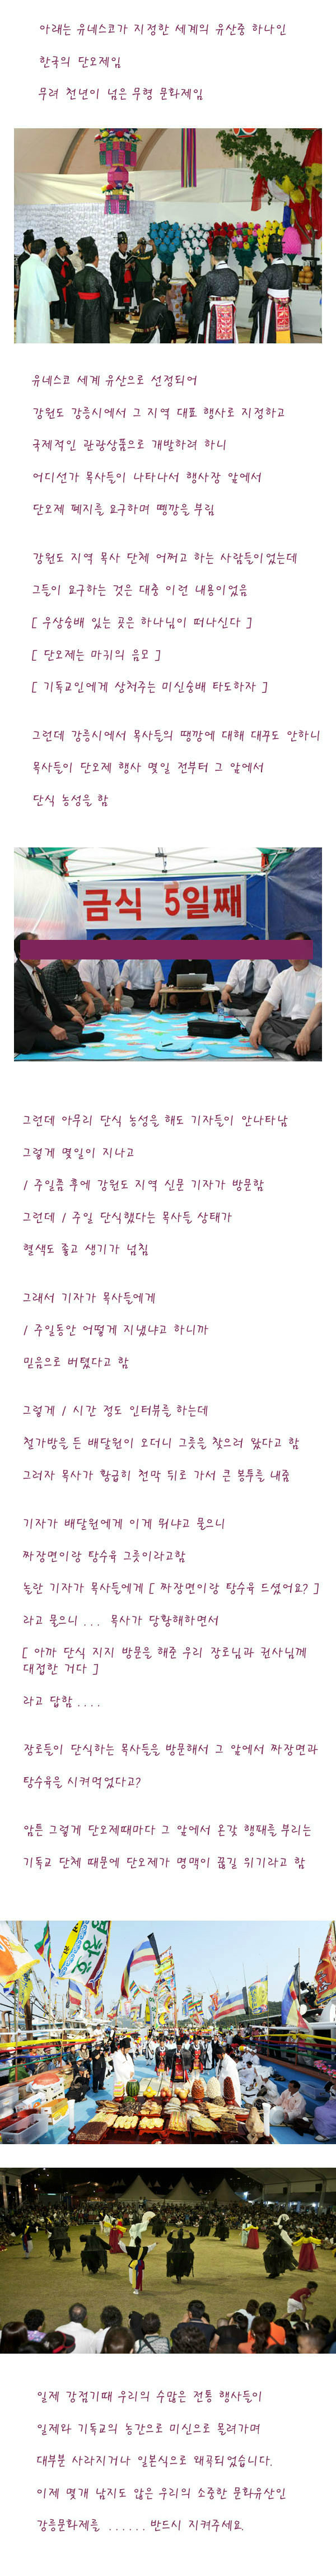 아래는 유네스코가 지정한 세계의 유산중 하나인
한국의 단오제임
무려 천년이 넘은 무형 문화제임
유네스코 세계 유산으로 선정되어
강원도 강릉시에서 그 지역 대표 행사로 지정하고
국제적인 관광상품으로 개발하려 하니
어디선가 목사들이 나타나서 행사장 앞에서
단오제 폐지를 요구하며 뗑깡을 부림
강원도 지역 목사 단체 어쩌고 하는 사람들이었는데
그들이 요구하는 것은 대충 이런 내용이었음
[ 우상숭배 있는 곳은 하나님이 떠나신다 ]
[ 단오제는 마귀의 음모 ]
[ 기독교인에게 상처주는 미신숭배 타도하자 ]
그런데 강릉시에서 목사들의 땡깡에 대해 대꾸도 안하니
목사들이 단오제 행사 몇일 전부터 그 앞에서
단식 농성을 함
금식 5일째
그런데 아무리 단식 농성을 해도 기자들이 안나타남
그렇게 몇일이 지나고
1 주일쯤 후에 강원도 지역 신문 기자가 방문함
그런데 1 주일 단식했다는 목사들 상태가
혈색도 좋고 생기가 넘침
그래서 기자가 목사들에게
1 주일동안 어떻게 지냈냐고 하니까
믿음으로 버텼다고 함
그렇게 1 시간 정도 인터뷰를 하는데
철가방을 든 배달원이 오더니 그릇을 찾으러 왔다고 함
그러자 목사가 황급히 천막 뒤로 가서 큰 봉투를 내줌
기자가 배달원에게 이게 뭐냐고 물으니
짜장면이랑 탕수육 그릇이라고함
놀란 기자가 목사들에게 [ 짜장면이랑 탕수육 드셨어요? ]
라고 물으니 . . . 목사가 당황해하면서
[ 아까 단식 지지 방문을 해준 우리 장로님과 권사님께
대접한 거다 ]
라고 답함 . . . .
장로들이 단식하는 목사들을 방문해서 그 앞에서 짜장면과
탕수육을 시켜먹었다고?
암튼 그렇게 단오제때마다 그 앞에서 온갖 행패를 부리는
기독교 단체 때문에 단오제가 명맥이 끊길 위기라고 함
일제 강점기때 우리의 수많은 전통 행사들이
일제와 기독교의 농간으로 미신으로 몰려가며
대부분 사라지거나 일본식으로 왜곡되었습니다.
이제 몇개 남지도 않은 우리의 소중한 문화유산인
강릉문화제를 . . . . . . 반드시 지켜주세요.